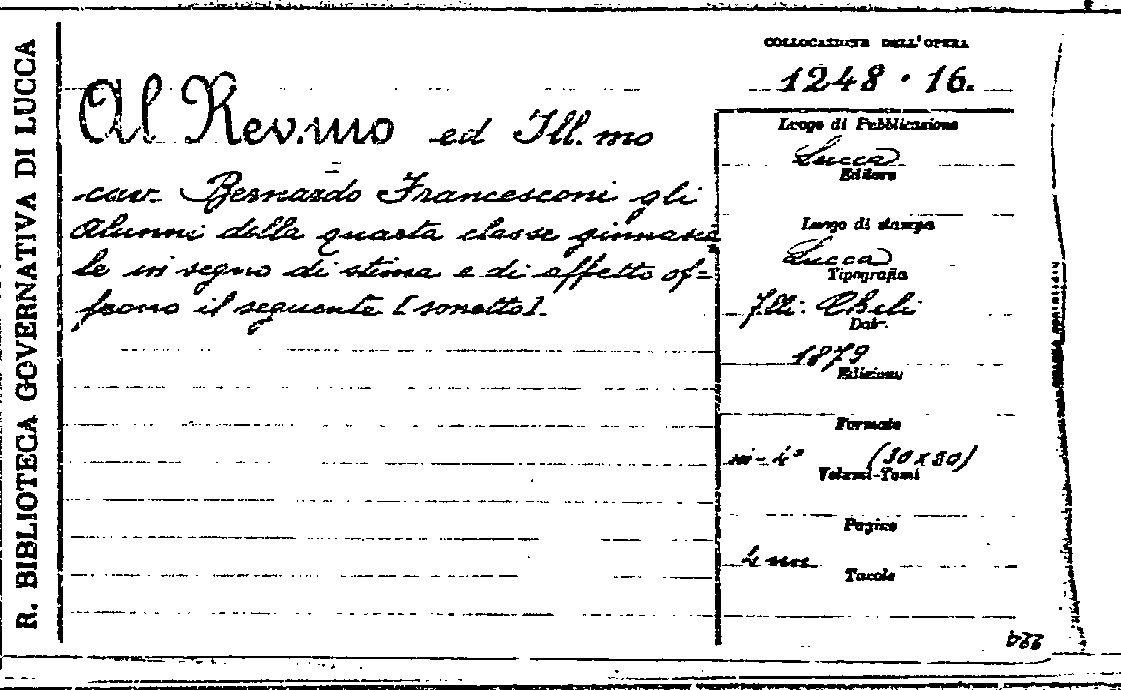 R. BIBLIOTECA GOVERNATIVA DI LUCCA
COLLOCAZIONE DELL'OPERA
1248 · 16.
Al Rev.mo ed Ill.mo
cav. Bernardo Francesconi gli
alunni della quarta classe ginnasia
le in segno di stima e di affetto of=
frono il seguente [sonetto].
Luogo di Pubblicazione
Lucca
Editore
Luogo di stampa
Lucca
Tipografia
F.lli: Cheli
Data
1879
Edizione
Formato
in-4° (30x80)
Volumi-Tomi
Pagine
4 nn
Tavole